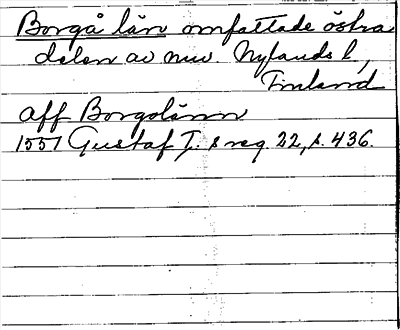 Borgå län omfattade östra
delen av nuv Nylands l,
Finland
aff Borgolänn
1557 Gustaf I:s reg 22, s. 436.